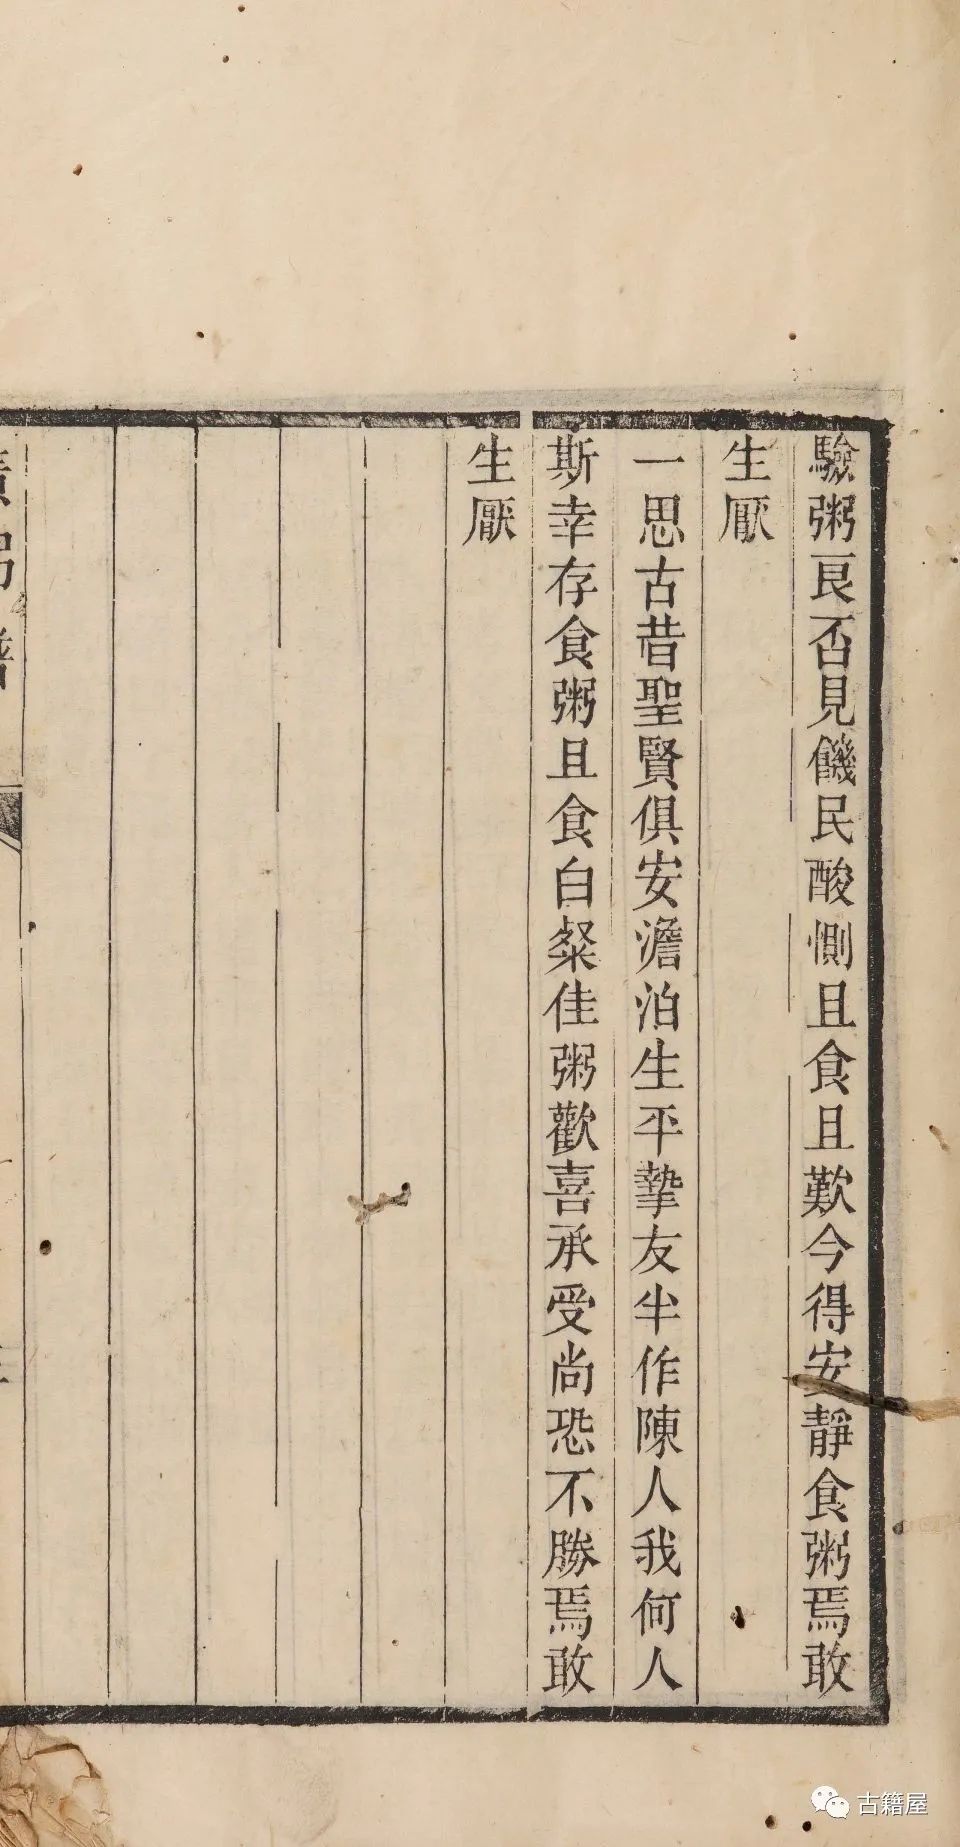 驗粥良否見饑民酸惻且食且歎今得安靜食粥焉敢
生厭
一思古昔聖賢俱安澹泊生平摯友半作陳人我何人
斯幸存食粥且食白粲佳粥歡喜承受尚恐不勝焉敢
生厭
古籍屋